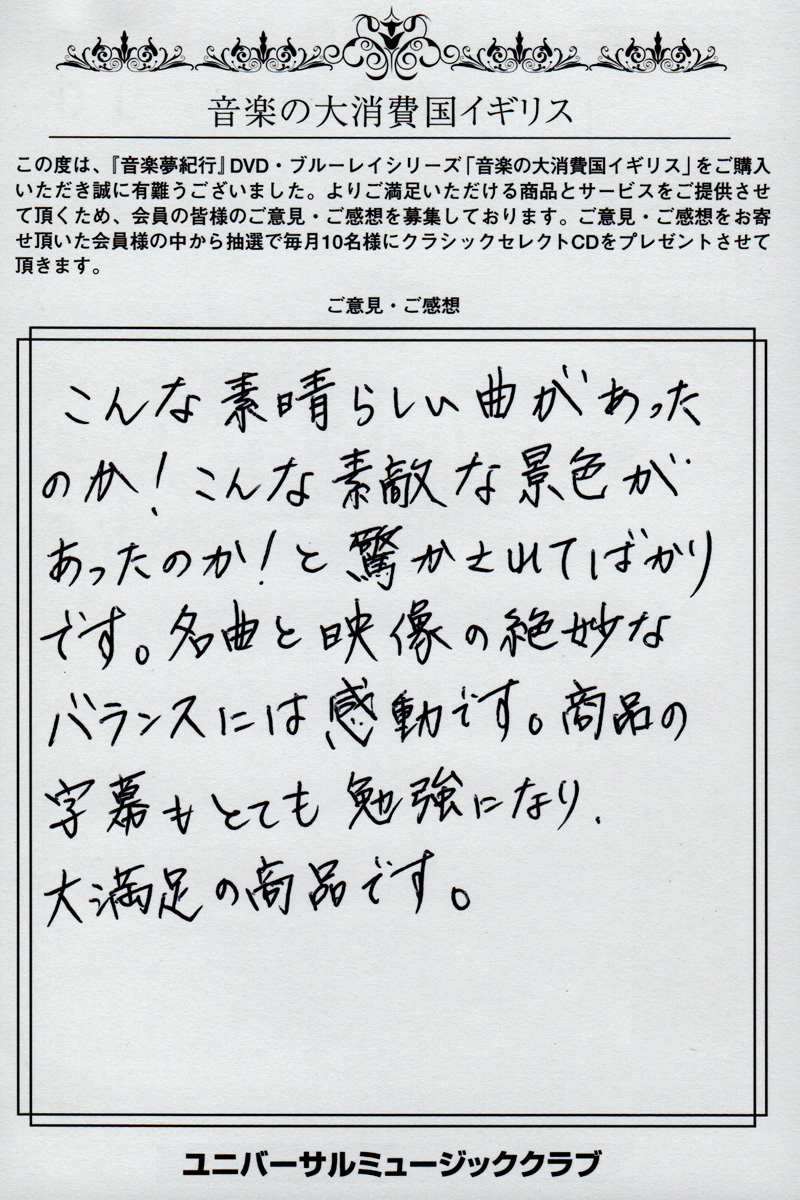 音楽の大消費国イギリス
この度は、『音楽夢紀行』DVD・ブルーレイシリーズ「音楽の大消費国イギリス」をご購入
いただき誠に有難うございました。よりご満足いただける商品とサービスをご提供させ
て頂くため、会員の皆様のご意見・ご感想を募集しております。ご意見・ご感想をお寄
せ頂いた会員様の中から抽選で毎月10名様にクラシックセレクトCDをプレゼントさせて
頂きます。
ご意見・ご感想
こんな素晴らしい曲があった
のか!こんな素敵な景色が
あったのか!と驚かされてばかり
です。名曲と映像の絶妙な
バランスには感動です。商品の
字幕もとても勉強になり、
大満足の商品です。
ユニバーサルミュージッククラブ